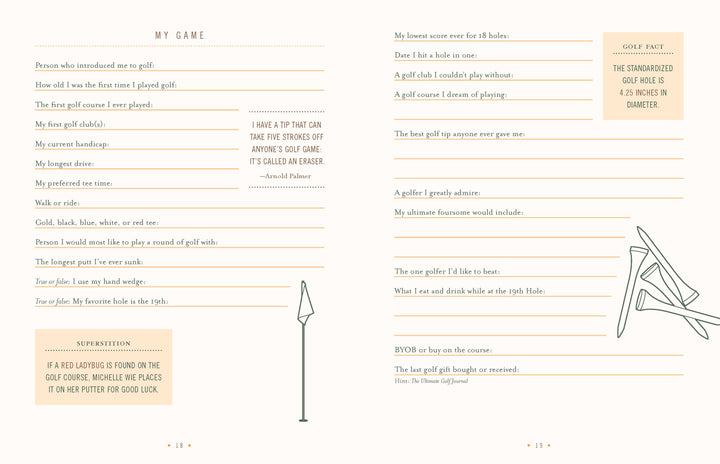 MY GAME
Person who introduced me to golf:
How old I was the first time I played golf:
The first golf course I ever played:
My first golf club(s):
My current handicap:
My longest drive:
My preferred tee time:
Walk or ride:
Gold, black, blue, white, or red tee:
Person I would most like to play a round of golf with:
The longest putt I've ever sunk:
True or false: I use my hand wedge:
True or false: My favorite hole is the 19th:
I HAVE A TIP THAT CAN
TAKE FIVE STROKES OFF
ANYONE'S GOLF GAME:
IT'S CALLED AN ERASER.
—Arnold Palmer
SUPERSTITION
IF A RED LADYBUG IS FOUND ON THE
GOLF COURSE, MICHELLE WIE PLACES
IT ON HER PUTTER FOR GOOD LUCK.
• 18 •
My lowest score ever for 18 holes:
Date I hit a hole in one:
A golf club I couldn't play without:
A golf course I dream of playing:
GOLF FACT
THE STANDARDIZED
GOLF HOLE IS
4.25 INCHES IN
DIAMETER.
The best golf tip anyone ever gave me:
A golfer I greatly admire:
My ultimate foursome would include:
The one golfer I'd like to beat:
What I eat and drink while at the 19th Hole:
BYOB or buy on the course:
The last golf gift bought or received:
Hint: The Ultimate Golf Journal
• 19 •